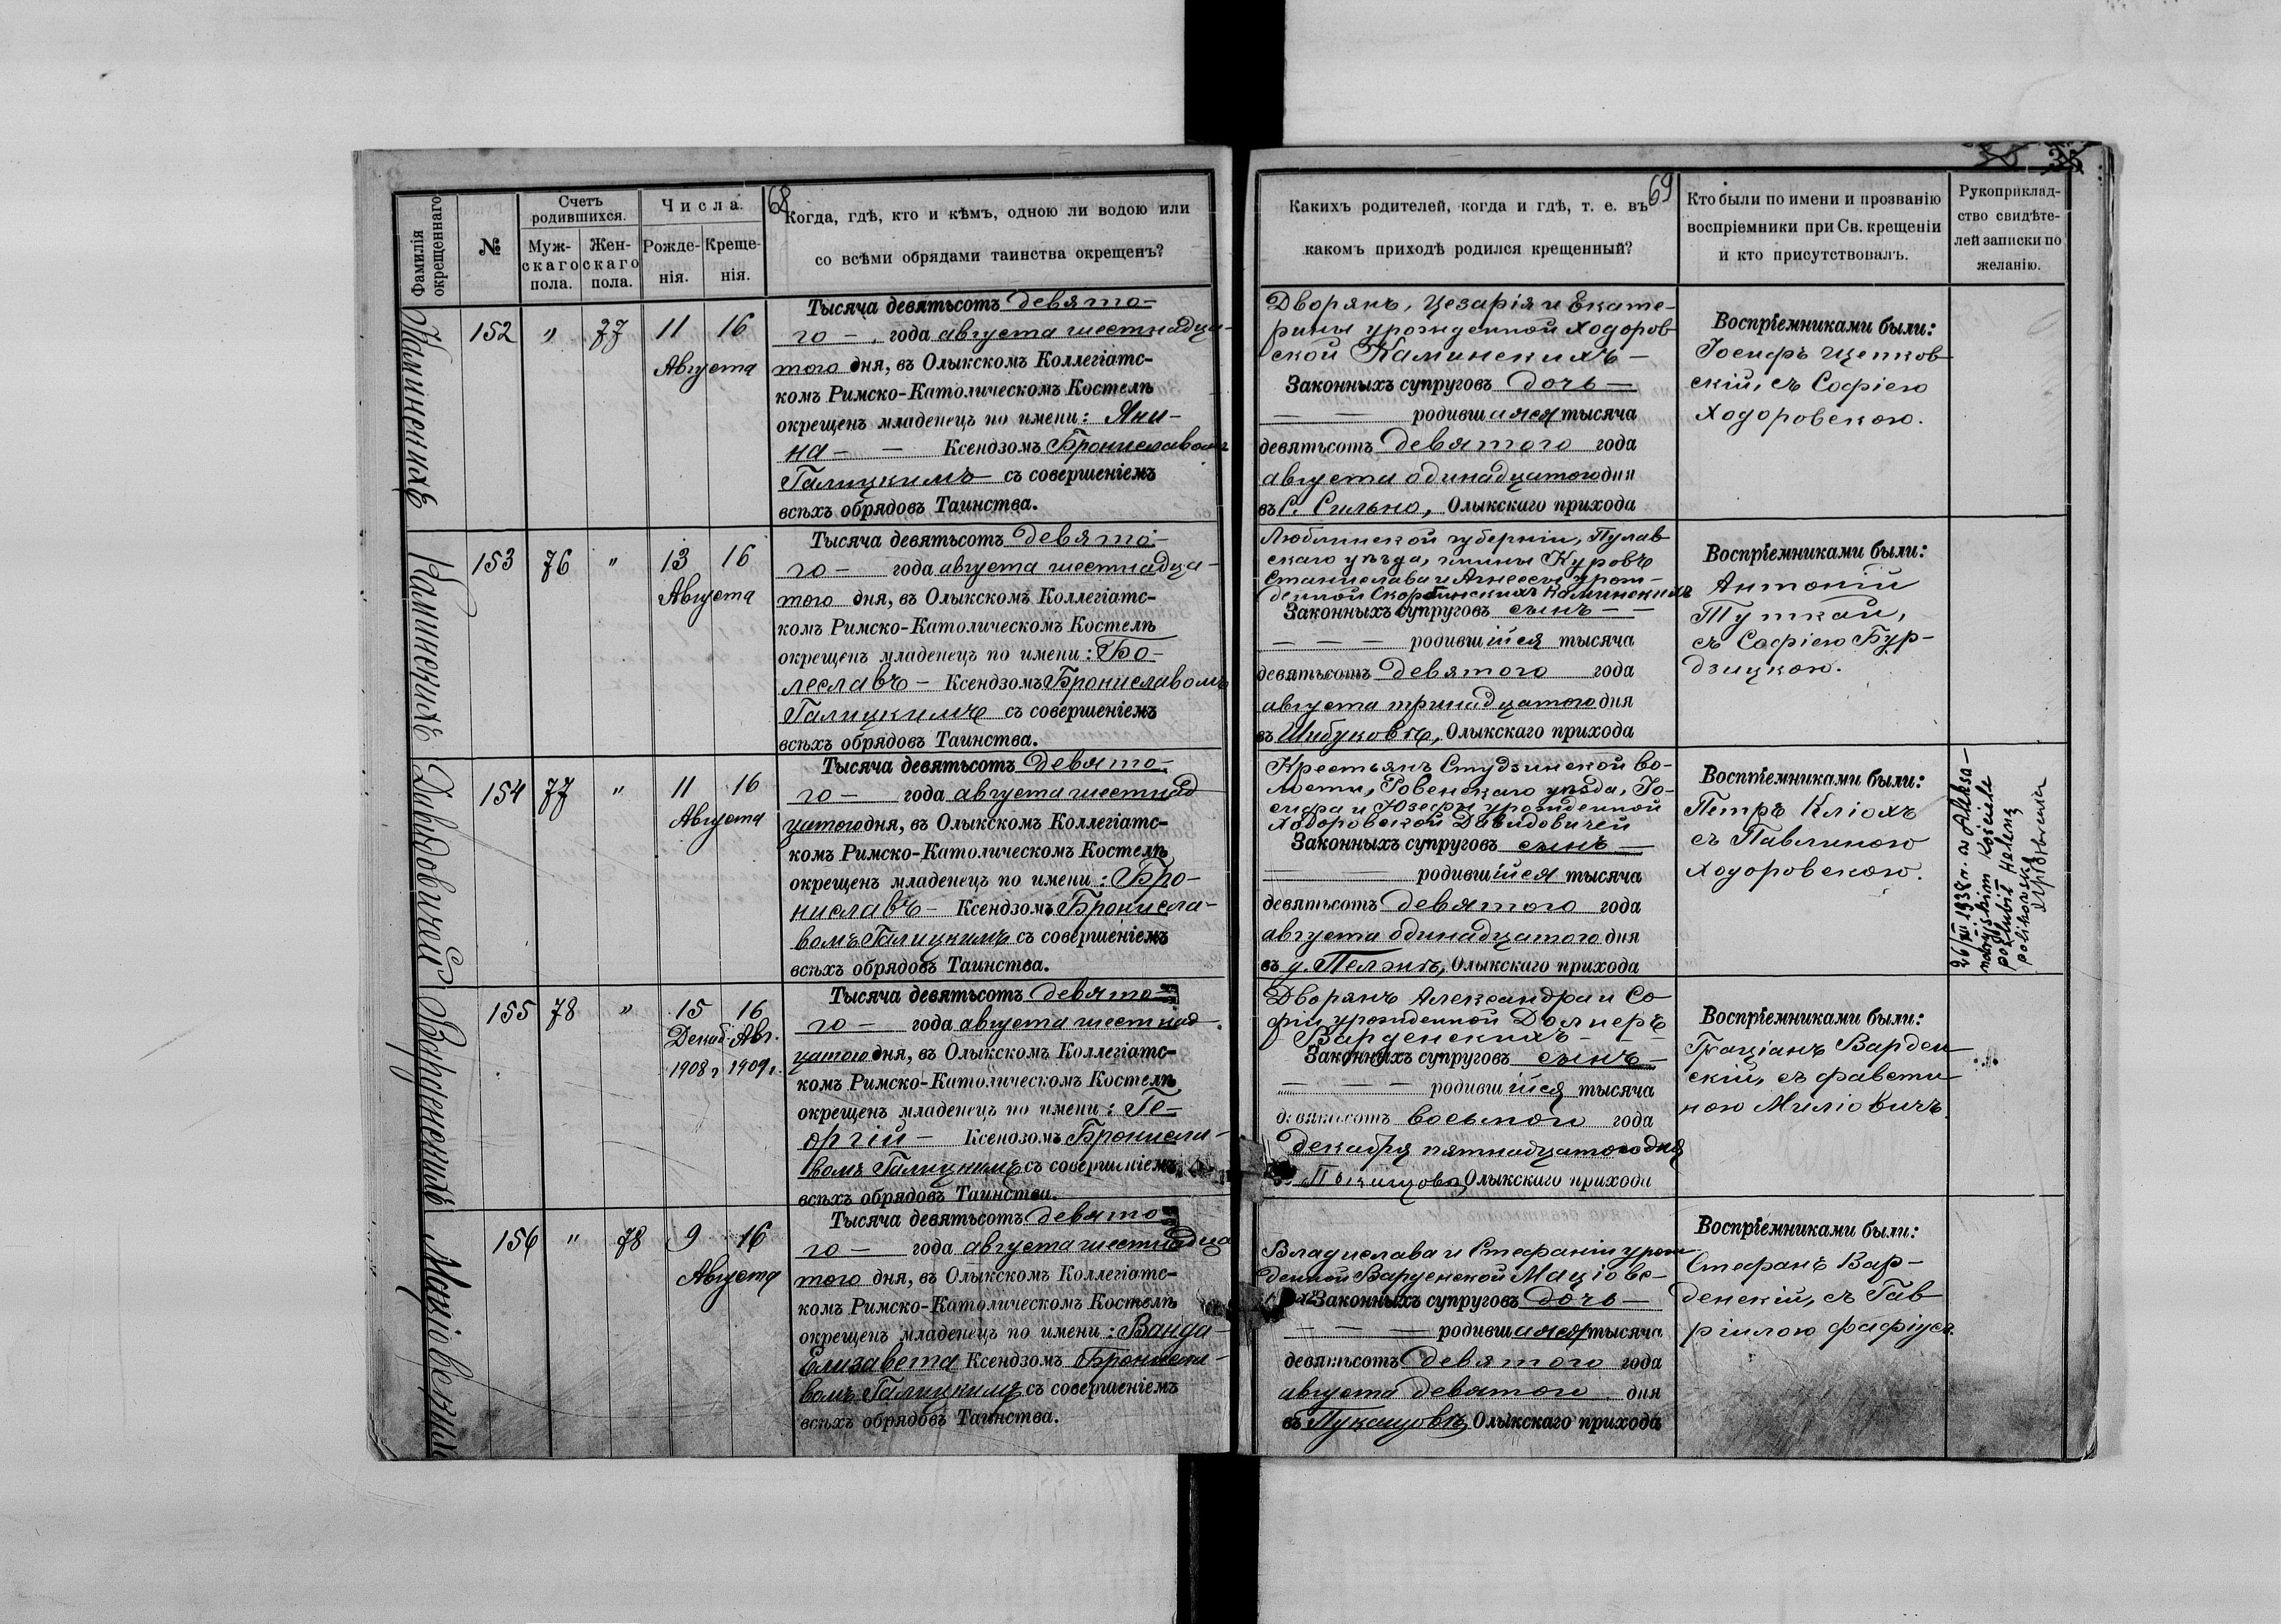 68
Фамилія
окрещеннаго
№
Счетъ
родившихся.
Муж-
скаго
пола.
Жен-
скаго
пола.
Числа.
Рожде-
нія.
Креще-
нія.
Когда, гдѣ, кто и кѣмъ, одною ли водою или
со всѣми обрядами таинства окрещенъ?
Каминскихъ
152 " 77 11 16
Августа
Тысяча девятьсотъ девято-
го - года августа шестнадца-
того дня, въ Олыкскомъ Коллегіатс-
комъ Римско-Католическомъ Костелѣ
окрещенъ младенецъ по имени: Яни-
на - - Ксендзомъ Брониславомъ
Галицкимъ съ совершеніемъ
всѣхъ обрядовъ Таинства.
Каминскихъ
153 76 " 13 16
Августа
Тысяча девятьсотъ девято-
го - года августа шестнадца-
того дня, въ Олыкскомъ Коллегіатс-
комъ Римско-Католическомъ Костелѣ
окрещенъ младенецъ по имени: Бо-
леславъ - Ксендзомъ Брониславомъ
Галицкимъ съ совершеніемъ
всѣхъ обрядовъ Таинства.
Давидовичей
154 77 " 11 16
Августа
Тысяча девятьсотъ девято-
го - года августа шестнад
цатого дня, въ Олыкскомъ Коллегіатс-
комъ Римско-Католическомъ Костелѣ
окрещенъ младенецъ по имени: Бро-
ниславъ - Ксендзомъ Бронисла-
вомъ Галицкимъ съ совершеніемъ
всѣхъ обрядовъ Таинства.
Варденскихъ
155 78 " 15 16
Декаб. Авг.
1908 г. 1909 г.
Тысяча девятьсотъ девято-
го - года августа шестнад
цатого дня, въ Олыкскомъ Коллегіатс-
комъ Римско-Католическомъ Костелѣ
окрещенъ младенецъ по имени: Ге-
оргій - Ксендзомъ Бронисла-
вомъ Галицкимъ съ совершеніемъ
всѣхъ обрядовъ Таинства.
Маціовскихъ
156 " 78 9 16
Августа
Тысяча девятьсотъ девято-
го - года августа шестнадца
того дня, въ Олыкскомъ Коллегіатс-
комъ Римско-Католическомъ Костелѣ
окрещенъ младенецъ по имени: Ванда-
Елизавета Ксендзомъ Бронисла-
вомъ Галицкимъ съ совершеніемъ
всѣхъ обрядовъ Таинства.
69
35
Какихъ родителей, когда и гдѣ, т. е. въ
какомъ приходѣ родился крещенный?
Кто были по имени и прозванію
воспріемники при Св. крещеніи
и кто присутствовалъ.
Рукоприклад-
ство свидѣте-
лей записки по
желанію.
Дворянъ, Цезарія и Екате-
рины урожденной Ходоров-
ской Каминскихъ -
Законныхъ супруговъ дочь -
- - родившаяся тысяча
девятьсотъ девятого года
августа одинадцатого дня
въ С. Сильно, Олыкскаго прихода
Воспріемниками были:
Іосифъ Щепков-
скій, съ Софіею
Ходоровскою.
Люблинской губерніи, Пулав
скаго уѣзда, гмины Куровъ
Станислава и Агнессы урож-
денной Каминскихъ
Законныхъ супруговъ сынъ - -
- - - родившійся тысяча
девятьсотъ девятого года
августа тринадцатого дня
въ Шибуковѣ, Олыкскаго прихода
Воспріемниками были:
Антоній
Туткай,
съ Софіею Бур-
дзицкою.
Крестьянъ Студзинской во-
лости, Ровенскаго уѣзда, Іо-
сифа и Юзефы урожденной
Ходоровской Давидовичей
Законныхъ супруговъ сынъ -
родившійся тысяча
девятьсотъ девятого года
августа одинадцатого дня
въ д. Пелжѣ, Олыкскаго прихода
Воспріемниками были:
Петръ Кліохъ
съ Павлиною
Ходоровскою.
26/XII 1938 r. w Aleksa-
ndryjskim Kościele
poślubił Helenę
Дворянъ Александра и Со-
фіи урожденной Долнеръ
Варденскихъ - - -
Законныхъ супруговъ сынъ -
- - - родившійся тысяча
девятьсотъ восьмого года
декабря пятнадцатого дня
Олыкскаго прихода
Воспріемниками были:
Граціанъ Варден
скій, съ Фавсти
ною Миліовичъ.
Владислава и Стефаніи урож
денной Варденской Маціовс-
кихъ Законныхъ супруговъ дочь -
- - - родившаяся тысяча
девятьсотъ девятого года
августа девятого дня
въ Пукащовѣ, Олыкскаго прихода
Воспріемниками были:
Стефанъ Вар-
денскій, съ Гав
ріилою